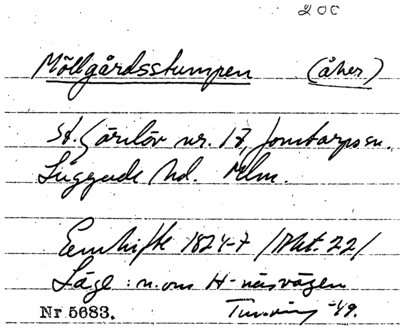 200
Möllgårdsstumpen (åker)
St. Görslöv nr. 17, Jonstorps sn.
Luggude hd. Mlm.
Enskifte 1824-7 /Akt. 22/
Läge: n. om H-näsvägen
Nr 5683. Tuneving -49.